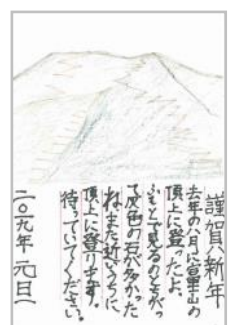 謹賀新年
去年の八月に富士山の
頂上に登ったよ。
ふもとで見るのとちがっ
て灰色の石が多かった
ね。また近いうちに
頂上に登ります。
待っていてください。
二〇一九年 元日